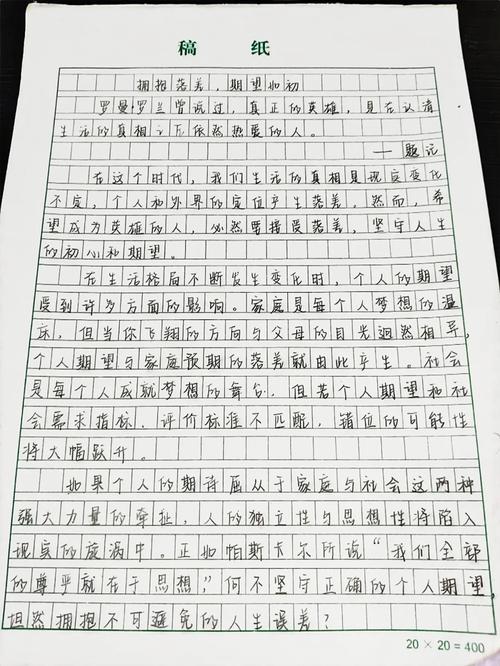 稿 纸
拥抱落差，期望如初
罗曼·罗兰曾说过，真正的英雄，是在认清
生活的真相之后依然热爱的人。
——题记
在这个时代，我们生活的真相是现实变化
不定，个人和外界的定位产生落差。然而，希
望成为英雄的人，必然要接受落差，坚守人生
的初心和期望。
在生活格局不断发生变化时，个人的期望
受到许多方面的影响。家庭是每个人梦想的温
床，但当你飞翔的方向与父母的目光迥然相异，
个人期望与家庭预期的落差就由此产生。社会
是每个人成就梦想的舞台，但若个人期望和社
会需求指标、评价标准不匹配，错位的可能性
将大幅跃升。
如果个人的期待屈从于家庭与社会这两种
强大力量的牵扯，人的独立性与思想性将陷入
现实的旋涡中。正如帕斯卡尔所说“我们全部
的尊严就在于思想”，何不坚守正确的个人期望，
坦然拥抱不可避免的人生误差？
20 × 20 = 400